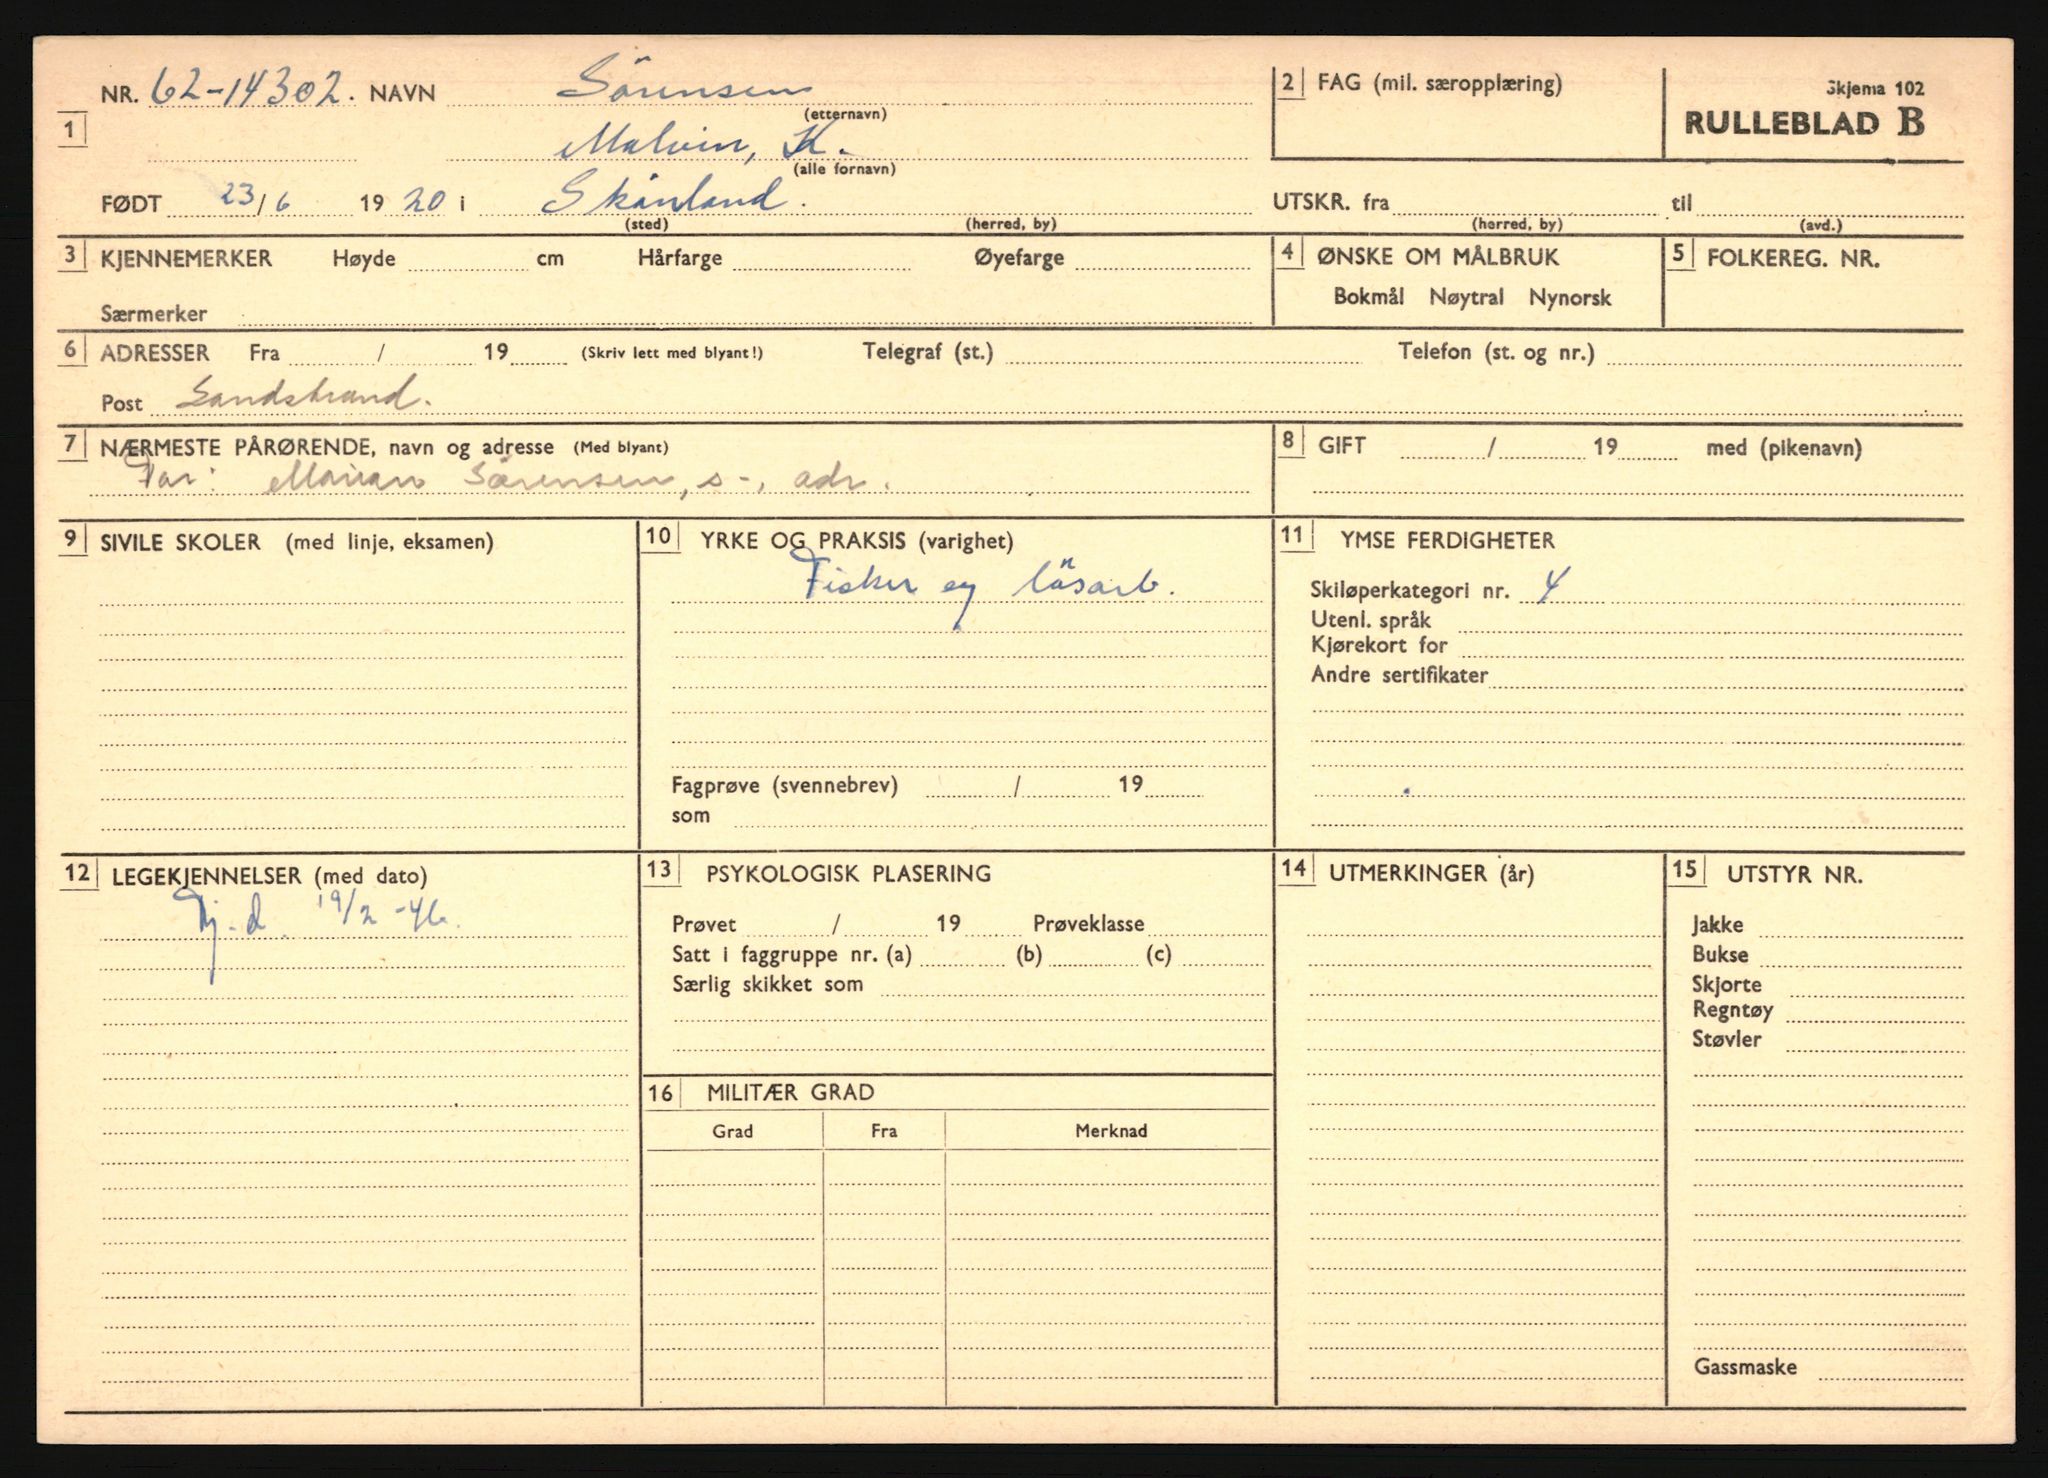 NR. 62-14302. NAVN Sörensen
(etternavn)
2 FAG (mil. særopplæring)
Skjema 102
RULLEBLAD B
1
Malvin, K.
(alle fornavn)
FØDT 23/6 1920 i Skånland.
(sted) (herred, by)
UTSKR. fra til
(herred, by) (avd.)
3 KJENNEMERKER Høyde cm Hårfarge Øyefarge
Særmerker
4 ØNSKE OM MÅLBRUK
Bokmål Nøytral Nynorsk
5 FOLKEREG. NR.
6 ADRESSER Fra / 19 (Skriv lett med blyant!) Telegraf (st.) Telefon (st. og nr.)
Post Sandstrand.
7 NÆRMESTE PÅRØRENDE, navn og adresse (Med blyant)
Far: Sørensen, s-, adr.
8 GIFT / 19 med (pikenavn)
9 SIVILE SKOLER (med linje, eksamen)
10 YRKE OG PRAKSIS (varighet)
Fisker og lösarb.
Fagprøve (svennebrev) / 19
som
11 YMSE FERDIGHETER
Skiløperkategori nr. 4
Utenl. språk
Kjørekort for
Andre sertifikater
12 LEGEKJENNELSER (med dato)
Tj.d. 19/2-46.
13 PSYKOLOGISK PLASERING
Prøvet / 19 Prøveklasse
Satt i faggruppe nr. (a) (b) (c)
Særlig skikket som
14 UTMERKINGER (år)
15 UTSTYR NR.
Jakke
Bukse
Skjorte
Regntøy
Støvler
Gassmaske
16 MILITÆR GRAD
Grad Fra Merknad